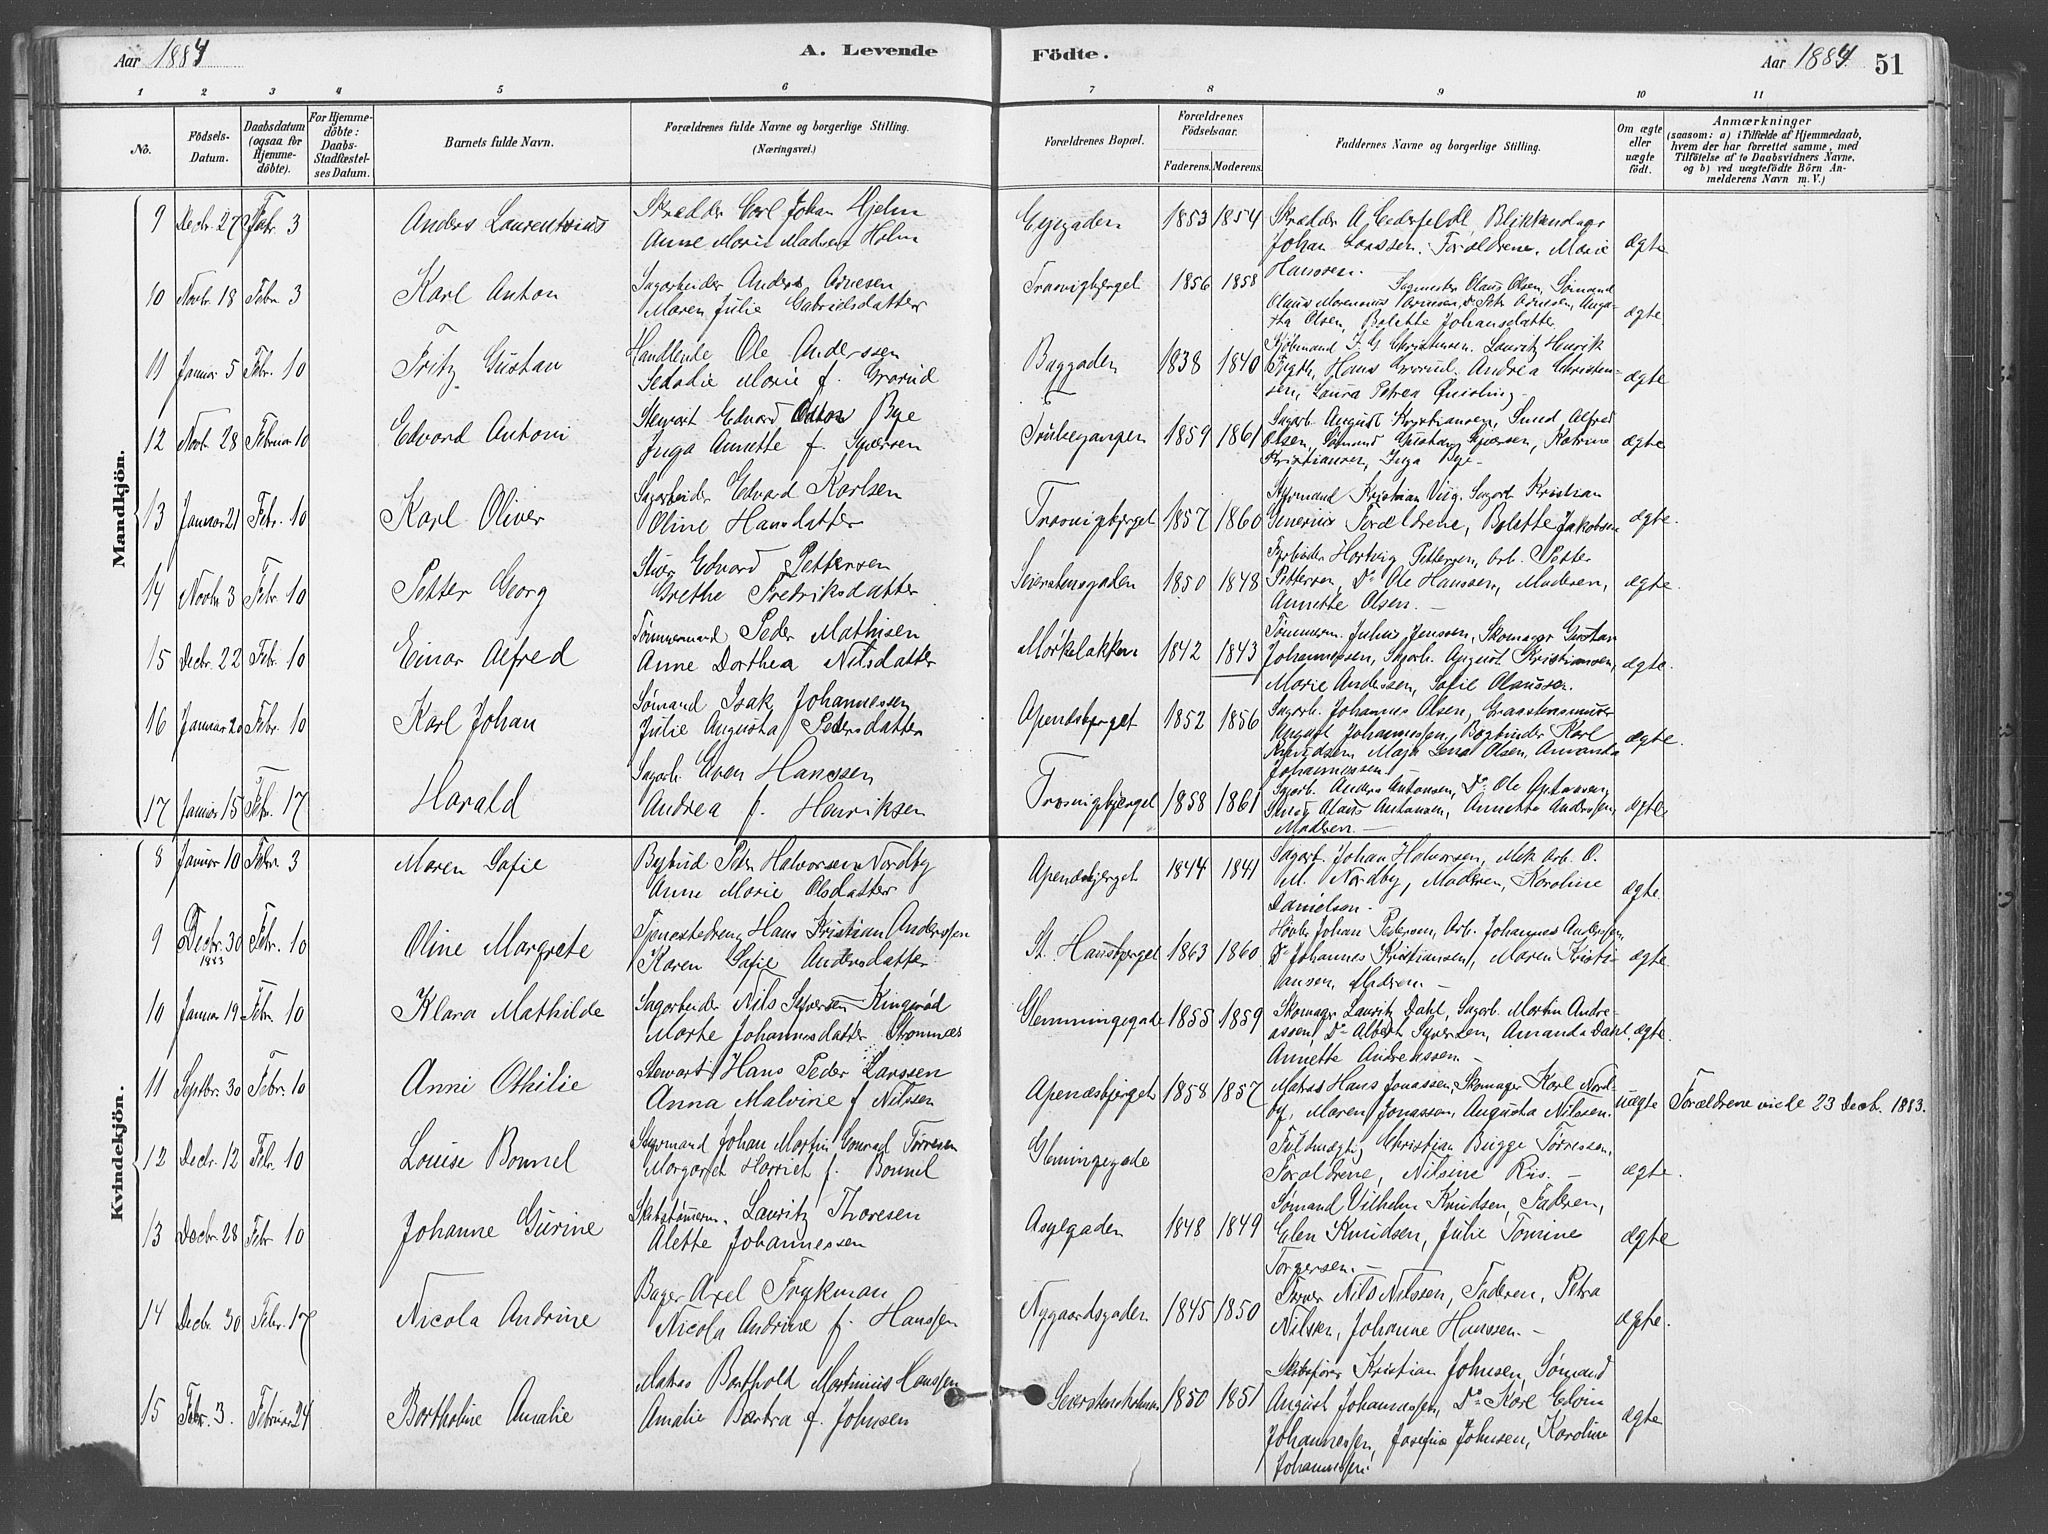 Aar 1884
A. Levende
Födte.
Aar 1884
51
1 2 3 4 5 6 7 8 9 10 11
No.
Födsels-Datum.
Daabsdatum (ogsaa for Hjemme-döbte).
For Hjemme-döbte: Daabs-Stadfæstel-ses Datum.
Barnets fulde Navn.
Forældrenes fulde Navne og borgerlige Stilling.
(Næringsvei.)
Forældrenes Bopæl.
Forældrenes Födselsaar.
Faderens. Moderens.
Faddernes Navne og borgerlige Stilling.
Om ægte eller uægte födt.
Anmærkninger
(saasom: a) i Tilfælde af Hjemmedaab, hvem der har forrettet samme, med Tilföielse af to Daabsvidners Navne, og b) ved uægtefödte Börn An-melderens Navn m. V.)
Mandkjön.
9 Decbr. 27 Febr. 3 Anders Laurentsius
Skrædder Carl Johan Hjelm
Anne Marie Madsen Holm
1853 1854
Skrædder A. Cederfeldt, Blikkenslager
Johan Larssen, Forældrene, Marie
Hanssen.
ægte
10 Novbr. 18 Febr. 3 Karl Anton
Sagarbeider Anders Arnesen
Maren Julie Gabrielsdatter
Trosvigbjerget 1856 1858
Sagmester Olaus Olsen, Sømand
Olaus Arnesen, Do Petr. Arnesen, Augu-
sta Olsen, Bolette Johansdatter
ægte
11 Januar 5 Febr. 10 Fritz Gustav
Handlende Ole Anderssen
Marie f. Grorud
Baggaden 1838 1840
Kjøbmand J. G. Christensen, Lauritz Henrik
Hans Grorud, Andrea Christen-
sen, Laura Petrea Quisling
ægte
12 Novbr. 28 Februar 10 Edvard Antoni
Stewart Edvard Anton Bye
Inga Annette f. Syversen
1859 1861
Sagarb. August Kristiansen, Smed Alfred
Olsen, Sømand Gustav Syversen, Katrine
Kristiansen, Inga Bye
ægte
13 Januar 21 Febr. 10 Karl Oliver
Sagarbeider Edvard Karlsen
Oline Hansdatter
Trosvigbjerget 1857 1860
Styrmand Kristian Viig, Sagarb. Kristian
Generius, Forældrene, Bolette Jakobsen
ægte.
14 Novbr. 3 Febr. 10 Petter Georg
Stuer Edvard Pettersen
Grethe Fredriksdatter
Seierstensgaden 1850 1848
Fyrbøder Hartvig Pettersen, Arb. Petter
Pettersen, Do Ole Hanssen, Moderen,
Annette Olsen.
ægte.
15 Decbr. 22 Febr. 10 Einar Alfred
Tømmermand Peder Mathisen
Anne Dorthea Nilsdatter
Mørkeløkken 1842 1843
Tømmerm. Julius Jenssen, Skomager Gustav
Johannessen, Sagarb. August Kristiansen,
Marie Anderssen, Sofie Olaussen.
ægte.
16 Januar 20 Febr. 10 Karl Johan
Sømand Isak Johannessen
Julie Augusta Pedersdatter
Apenæsbjerget 1852 1856
Sagarb. Johannes Olsen,
August Johannessen, Bogbinder Karl
Knudsen, Maja Lena Olsen, Amanda
Johannessen
ægte.
17 Januar 15 Febr. 17 Harald
Sagarb. Even Hanssen
Andrea f. Henriksen
Trosvigbjerget 1858 1861
Sagarb. Anders Antonsen, Do Ole Antonsen,
Smed Olaus Antonsen, Annette Anderssen,
Moderen.
ægte
Kvindekjön.
8 Januar 10 Febr. 3 Maren Sofie
Bybud Peder Halvorsen Nordby
Anne Marie Olsdatter
Apenæsbjerget 1844 1841
Sagarb. Johan Halvorsen, Mek. Arb. O.
M. Nordby, Moderen, Karoline
Danielsen.
ægte.
9 Decbr. 30 1883 Febr. 10 Oline Margrete
Tjenestedreng Hans Kristian Anderssen
Karen Sofie Andersdatter
St. Hansbjerget 1863 1860
Johan Pedersen, Arb. Johannes Anderssen,
Do Johannes Kristiansen, Maren Kristi-
ansen, Moderen
ægte.
10 Januar 19 Febr. 10 Klara Mathilde
Sagarbeider Nils Syversen Kingsrød
Marthe Johannesdatter
Glemmingegade 1855 1859
Skomager Lauritz Dahl, Sagarb. Martin Andre-
assen, Do Albert Syversen, Amanda Dahl,
Annette Andreassen
ægte.
11 Septbr. 30 Febr. 10 Anni Othilie
Stewart Hans Peder Larssen
Anna Malvine f. Nilssen
Apenæsbjerget 1858 1857
Matros Hans Jonassen, Skomager Karl Nord-
by, Maren Jonassen, Augusta Nilssen.
uægte
Forældrene viede 23 Decb. 1883.
12 Decbr. 12 Febr. 10 Louise Bonnel
Styrmand Johan Martin Conrad Torresen
Margaret Harriet f. Bonnel
Glemmingegade
Fuldmægtig Christian Bugge Torressen,
Forældrene, Nilsine Riis.
ægte.
13 Decbr. 28 Febr. 10 Johanne Gurine
Skibstømerm. Lauritz Thoresen
Alette Johannessen
Asylgaden 1848 1849
Sømand Vilhelm Knudsen, Faderen,
Elen Knudsen, Julie Tomine
Torgersen.
ægte
14 Decbr. 30 Febr. 17 Nicola Andrine
Bager Axel Frykman
Nicola Andrine f. Hanssen
Nygaardsgaden 1845 1850
Nils Nilssen, Faderen, Petra
Nilssen, Johanne Hanssen.
ægte.
15 Febr. 3. Februar 24 Bartholine Amalie
Matros Barthold Martinius Hanssen
Amalie f. Johnsen
1850 1851
Skibsfører Kristian Johnsen, Sømand
August Johannessen, Do Karl Edvin
Johannessen, Josefine Johnsen, Karoline
Johannessen.
ægte